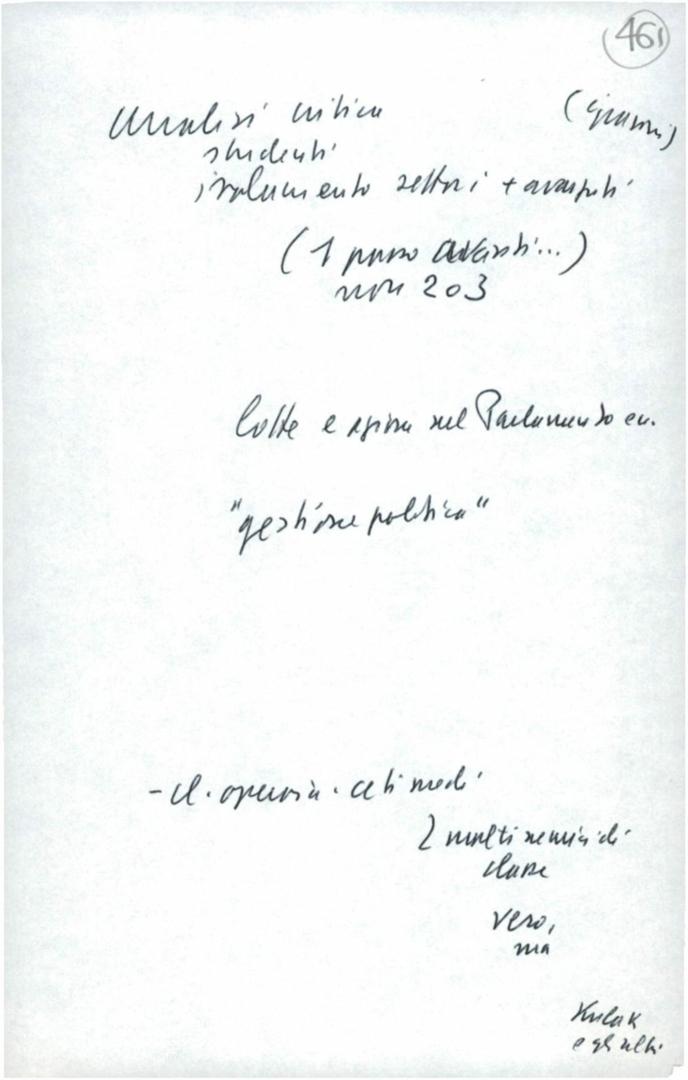 461
analisi critica
studenti
isolamento settori + avanzati
(1 passo avanti...)
non 2 o 3
lotte e azione nel Parlamento eu.
"gestione politica"
- cl. operaia. ceti medi
2 molti nemici di
classe
vero,
ma
Kulak
e gli altri